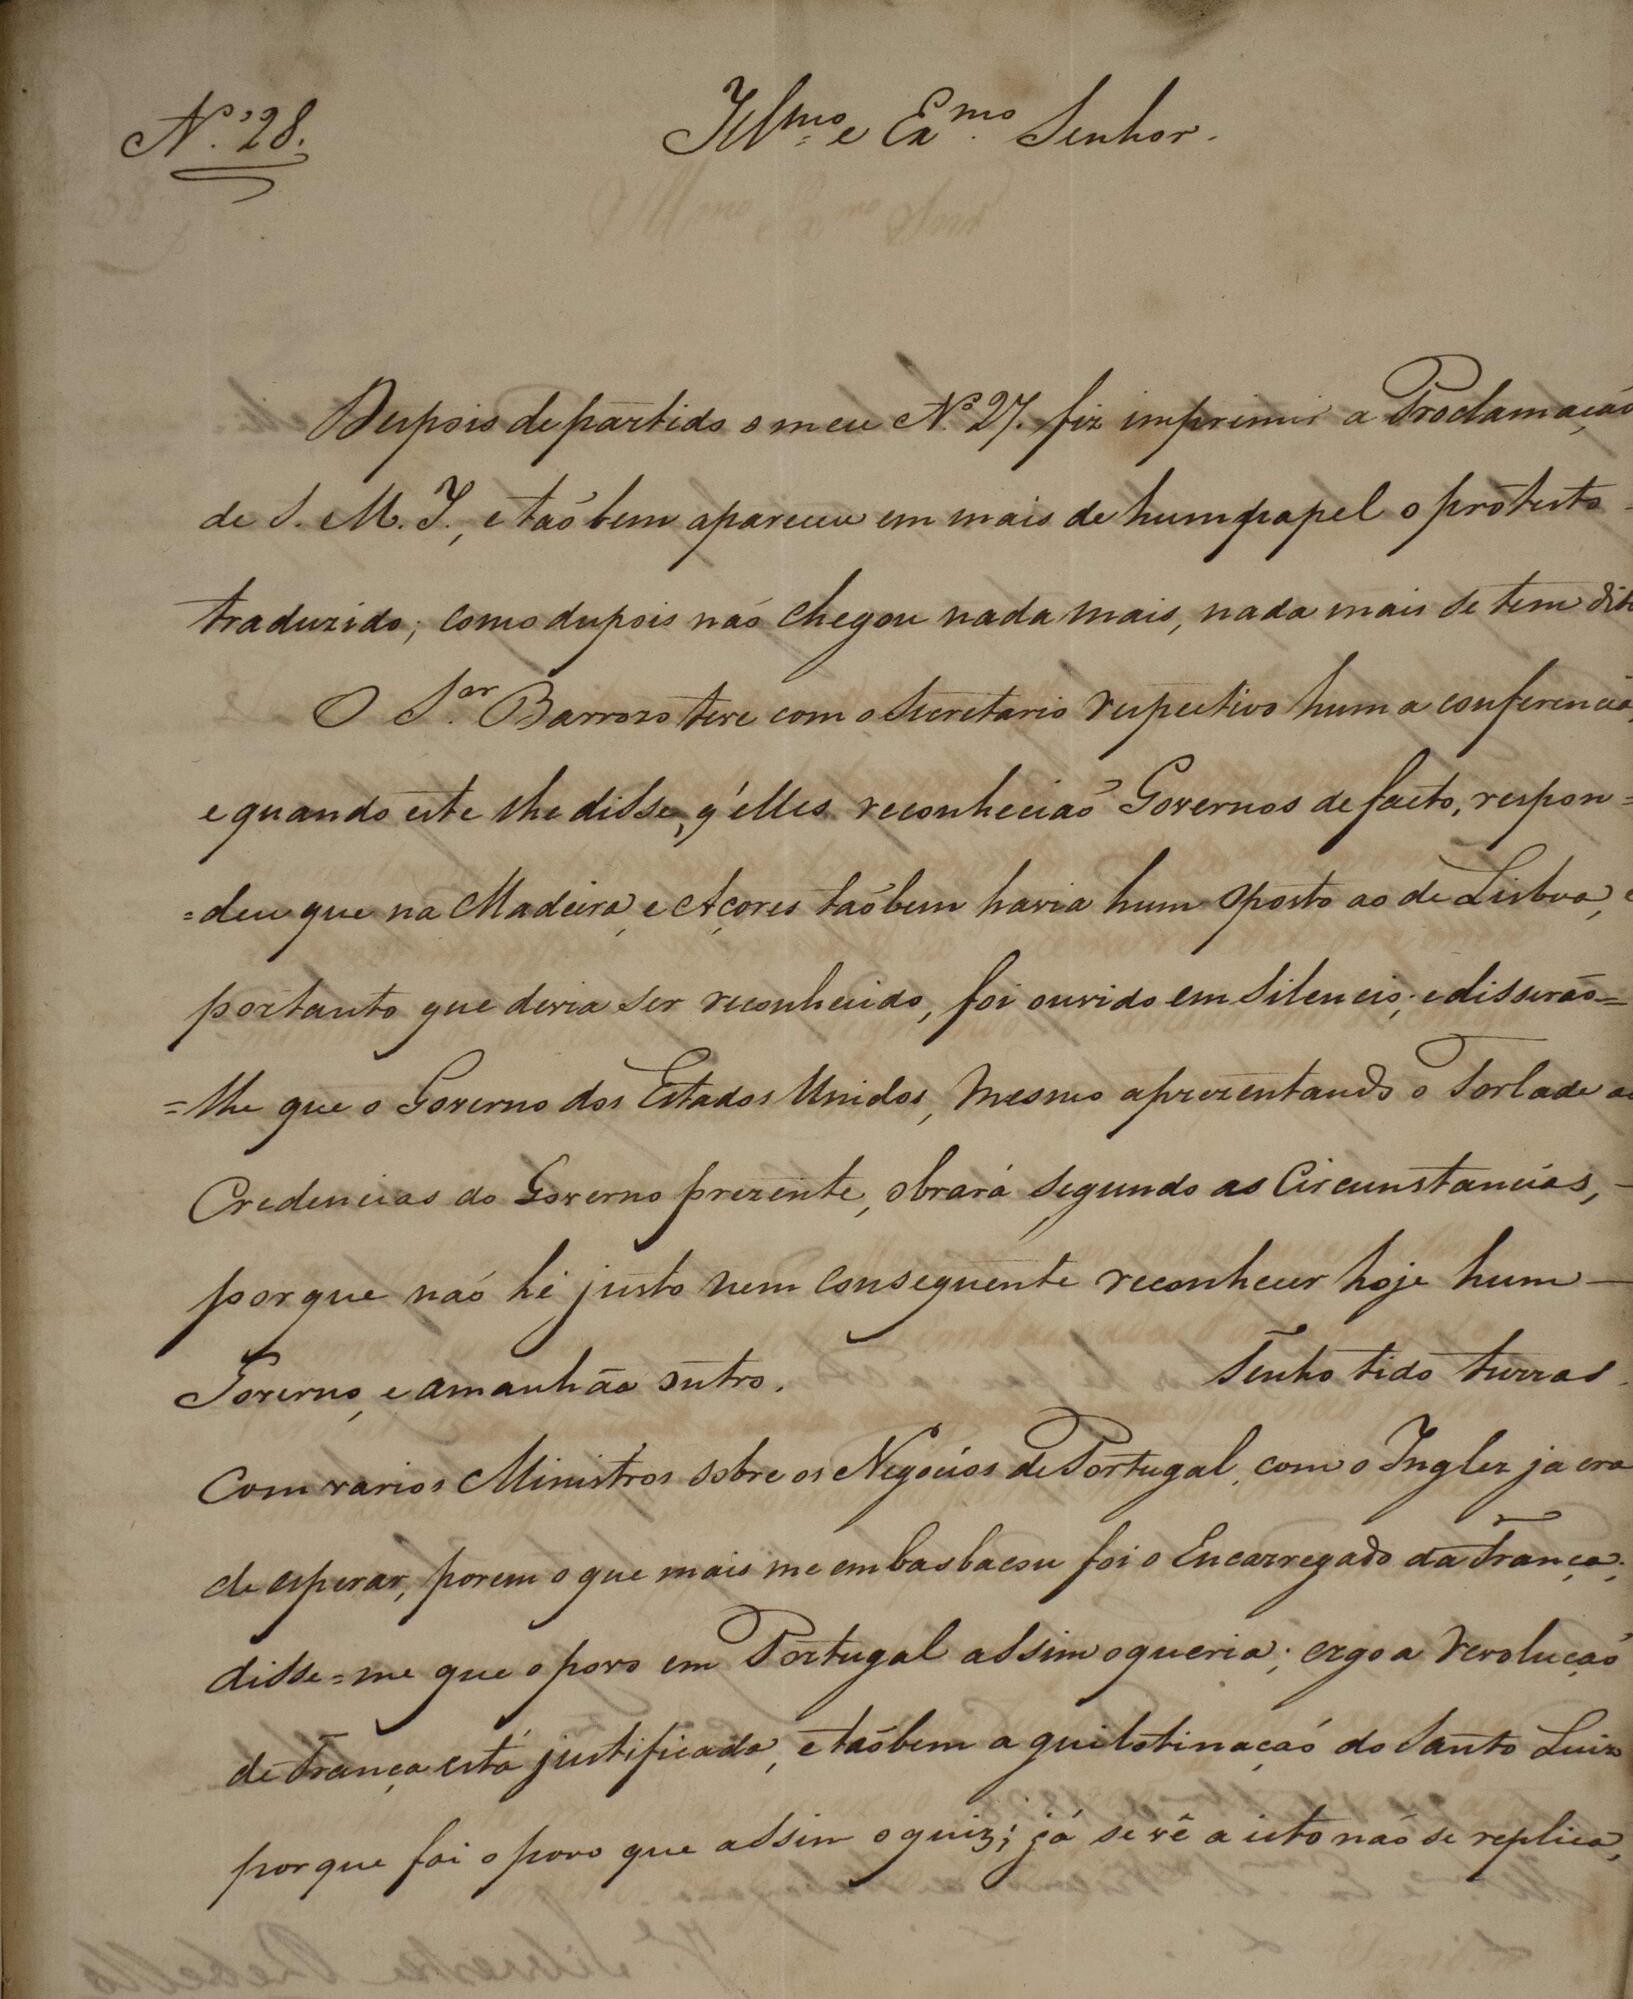 N.º 28.
Illmo e Exmo Senhor.
Depois de partido o meu Nº 27. fiz imprimir a Proclamação
de S. M. I., e taõ bem apareceu em mais de hum papel o protesto
traduzido; como depois naõ chegou nada mais, nada mais se tem dito
O Sor Barrozo teve com o Secretario respectivo huma conferencia,
e quando este lhe disse, q' elles reconheciaõ Governos de facto, respon=
=deu que na Madeira, e Açores taõbem havia hum oposto ao de Lisboa, e
portanto que devia ser reconhecido, foi ouvido em silencio; e disseraõ=
=lhe que o Governo dos Estados Unidos, mesmo aprezentando o Torlade as
Credencias do Governo prezente, obrará segundo as Circunstancias,
porque naõ hé justo nem consequente reconhecer hoje hum
Governo, e amanhãa outro. Tenho tido turras
Com varios Ministros sobre os Negocios de Portugal, com o Inglez ja era
de esperar, porem o que mais me embasbacou foi o Encarregado da França;
disse=me que o povo em Portugal assim o queria; ergo a Revoluçaõ
de França está justificada, e taõbem a guilotinaçaõ do Santo Luiz
porque foi o povo que assim o quiz; já se vê a isto naõ se replica,